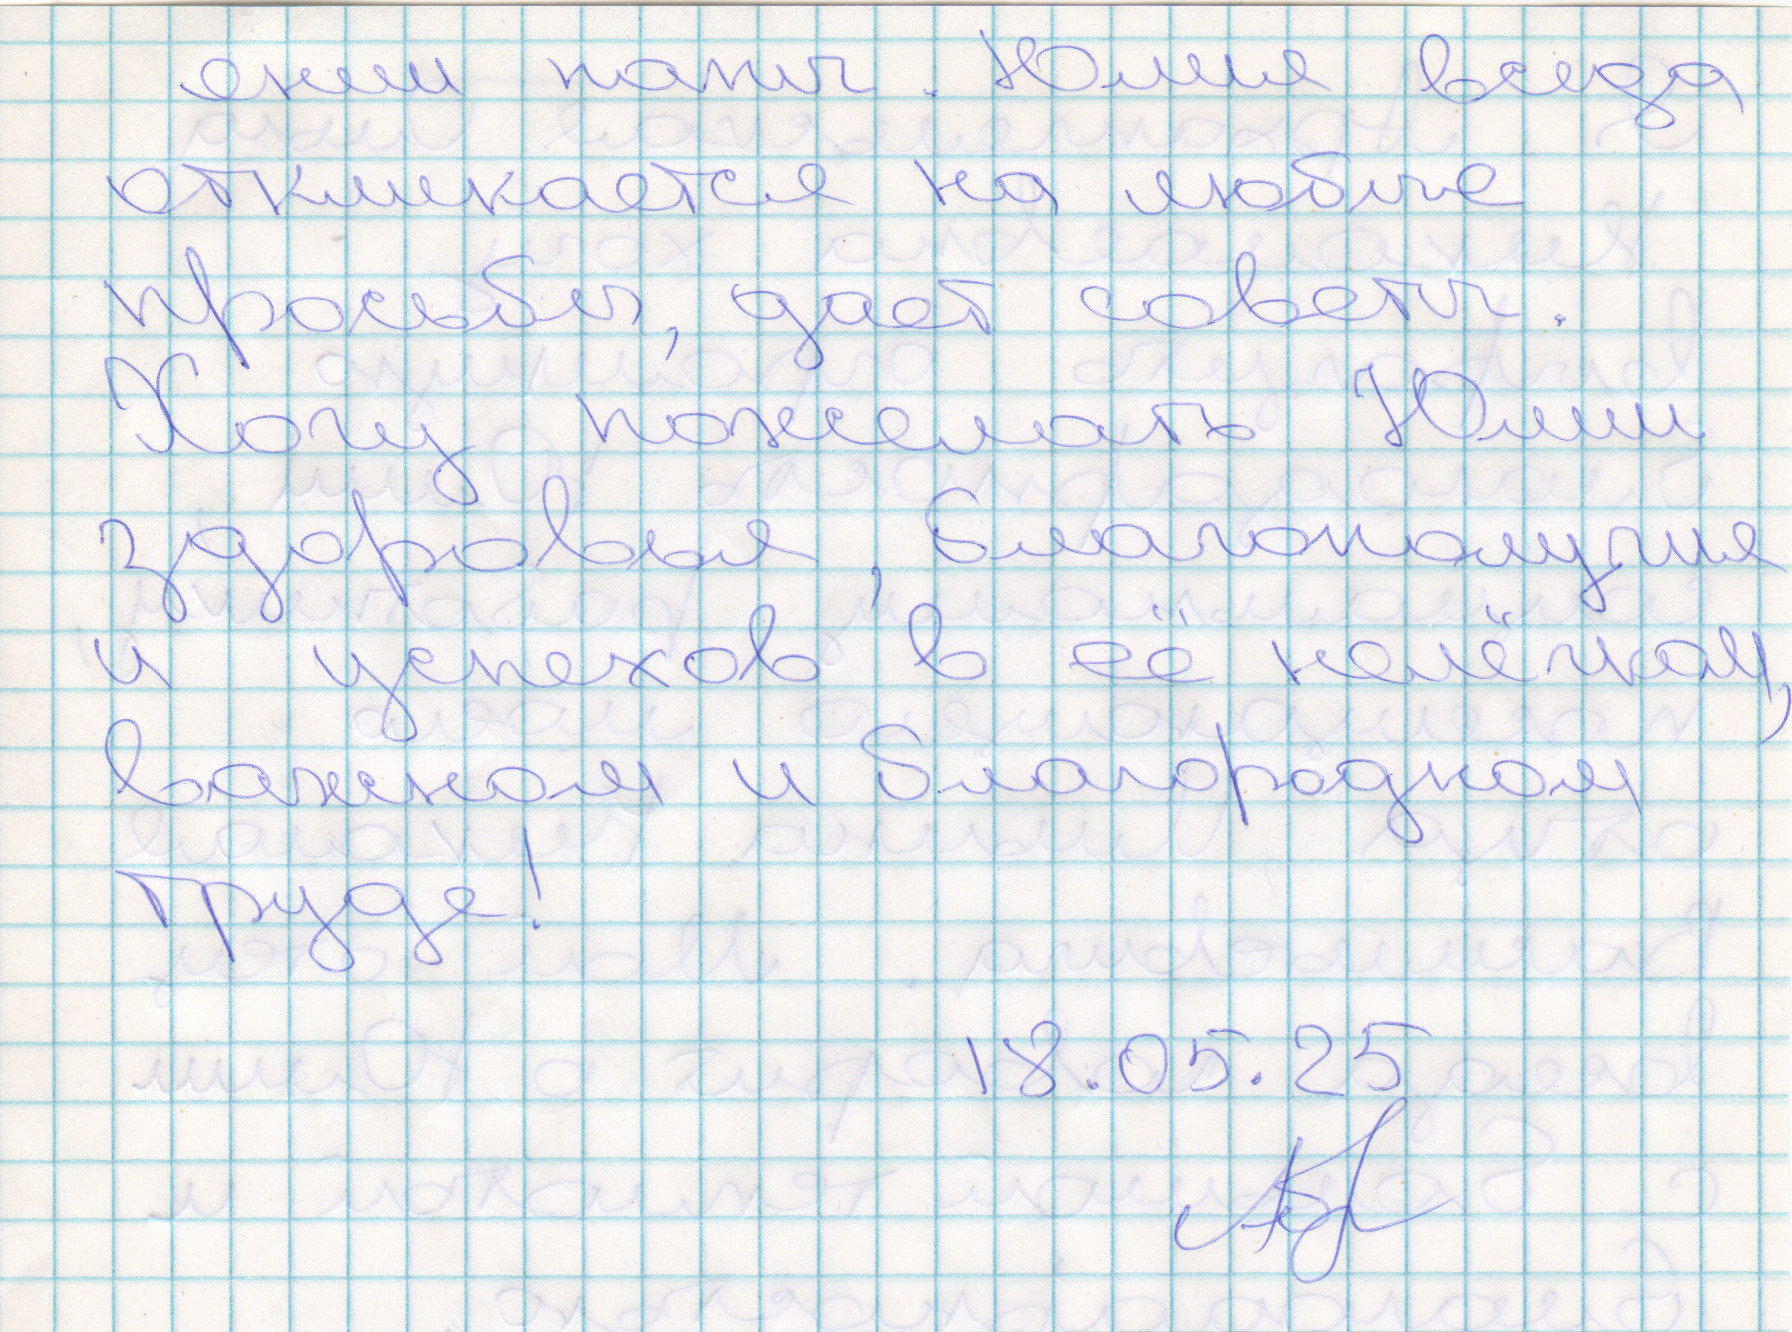 ении папы. Юлия всегда
откликается на любые
просьбы, дает советы.
Хочу пожелать Юлии
здоровья, благополучия
и успехов в её нелёгком,
важном и благородном
труде!
18.05.25